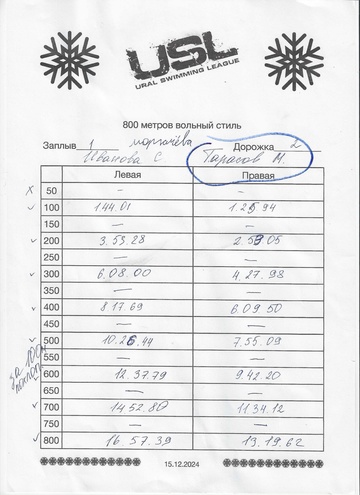 USL
URAL SWIMMING LEAGUE
800 метров вольный стиль
Заплыв 1 Моргачёва Дорожка 2
Иванова С Тарасов М.
Левая Правая
X 50 — —
✓ 100 1.44.01 1.25.94
150 — —
✓ 200 3.53.28 2.53.05
250 — —
✓ 300 6.08.00 4.27.98
350 — —
✓ 400 8.17.69 6.09.50
450 — —
✓ 500 10.26.44 7.55.09
550 — —
✓ 600 12.37.79 9.42.20
650 — —
✓ 700 14.52.80 11.34.12
750 — —
✓ 800 16.57.39 13.19.62
15.12.2024